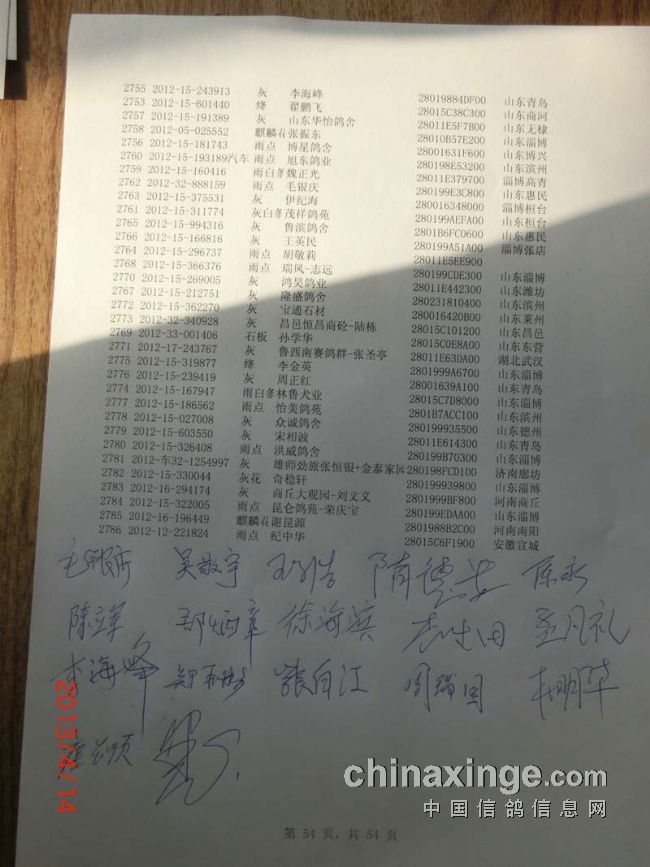 2755 2012-15-243913 灰 李海峰 28019884DF00 山东青岛
2753 2012-15-601440 绛 翟鹏飞 28015C38C300 山东商河
2757 2012-15-191389 灰 山东华怡鸽舍 28011E5F7B00 山东无棣
2758 2012-05-025552 麒麟花张振东 28010B57E200 山东淄博
2756 2012-15-181743 雨点 博星鸽舍 28001631F600 山东博兴
2760 2012-15-193189汽车 雨点 旭东鸽业 280198E53200 山东滨州
2759 2012-15-160416 雨白条魏正光 28011E379700 淄博高青
2762 2012-32-888159 雨点 毛银庆 280199E3C800 山东惠民
2763 2012-15-375531 灰 伊纪海 280016348000 淄博桓台
2761 2012-15-311774 灰白条茂祥鸽苑 280199AEFA00 山东桓台
2765 2012-15-994316 灰 鲁滨鸽舍 2801B6FC0600 山东惠民
2766 2012-15-166816 灰 王英民 280199A51A00 淄博张店
2764 2012-15-296737 雨点 胡敬莉 28011E5EE900
2768 2012-15-366376 雨点 瑞风-志远 280199CDE300 山东淄博
2770 2012-15-269005 灰 鸿昊鸽业 28011E442300 山东潍坊
2767 2012-15-212751 灰 隆盛鸽舍 280231810400 山东滨州
2772 2012-15-362270 灰 宝通石材 280016420B00 山东莱州
2773 2012-32-340928 灰 昌邑恒昌商砼-陆栋 28015C101200 山东昌邑
2769 2012-33-001406 石板 孙学华 28015C0E8A00 山东东营
2771 2012-17-243767 灰 鲁西南赛鸽群-张圣亭 28011E63DA00 湖北武汉
2775 2012-15-319877 绛 李金英 2801999A6700 山东淄博
2776 2012-15-239419 灰 周正红 28001639A100 山东青岛
2774 2012-15-167947 雨白条林鲁犬业 28015C7D8000 山东淄博
2777 2012-15-186562 雨点 怡美鸽苑 2801B7ACC100 山东滨州
2778 2012-15-027008 灰 众诚鸽舍 280199935500 山东德州
2779 2012-15-603550 灰 宋相波 28011E614300 山东青岛
2780 2012-15-326408 雨点 洪威鸽舍 280199B70300 山东淄博
2781 2012-车32-1254997 灰 雄师劲旅张恒银+金泰家园 280198FCD100 济南廊坊
2782 2012-15-330044 灰花 奇稳轩 280199939800 山东淄博
2783 2012-16-294174 灰 商丘大观园-刘文义 2801999BF800 河南商丘
2784 2012-15-322005 雨点 昆仑鸽苑-荣庆宝 280199EDAA00 山东淄博
2785 2012-16-196449 麒麟花谢昆源 2801988B2C00 河南南阳
2786 2012-12-221824 雨点 纪中华 28015C6F1900 安徽宣城
毛银庆 吴敬宇 隋德
徐海滨 孟凡礼
李海峰 张自江 周瑞国
2013/4/14
chinaxinge.com
中国信鸽信息网
第 54 页, 共 54 页